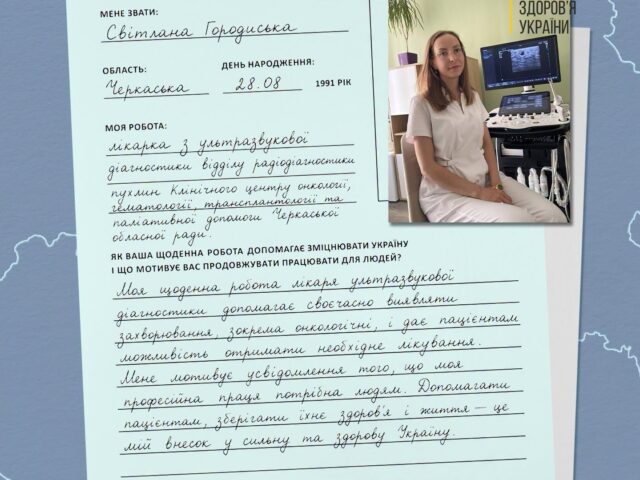 МЕНЕ ЗВАТИ:
Світлана Городиська
ЗДОРОВ'Я
УКРАЇНИ
ОБЛАСТЬ:
ДЕНЬ НАРОДЖЕННЯ:
Черкаська
28.08
1991 РІК
МОЯ РОБОТА:
лікарка з ультразвукової
діагностики відділу радіодіагностики
пухлин Клінічного центру онкології,
гематології, трансплантології та
паліативної допомоги Черкаської
обласної ради.
ЯК ВАША ЩОДЕННА РОБОТА ДОПОМАГАЄ ЗМІЦНЮВАТИ УКРАЇНУ
І ЩО МОТИВУЄ ВАС ПРОДОВЖУВАТИ ПРАЦЮВАТИ ДЛЯ ЛЮДЕЙ?
Моя щоденна робота лікаря ультразвукової
діагностики допомагає своєчасно виявляти
захворювання, зокрема онкологічні, і дає пацієнтам
можливість отримати необхідне лікування.
Мене мотивує усвідомлення того, що моя
професійна праця потрібна людям. Допомагати
пацієнтам, зберігати їхнє здоров'я і життя — це
мій внесок у сильну та здорову Україну.